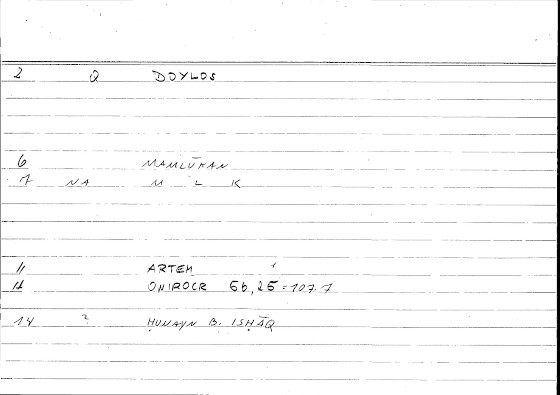 2 Q DOYLOS
6 MAMLŪKAN
7 NA M L K
11 ARTEM
12 ONIROCR 56,25 = 107.7
14 ? ḤUNAYN B. ISḤĀQ